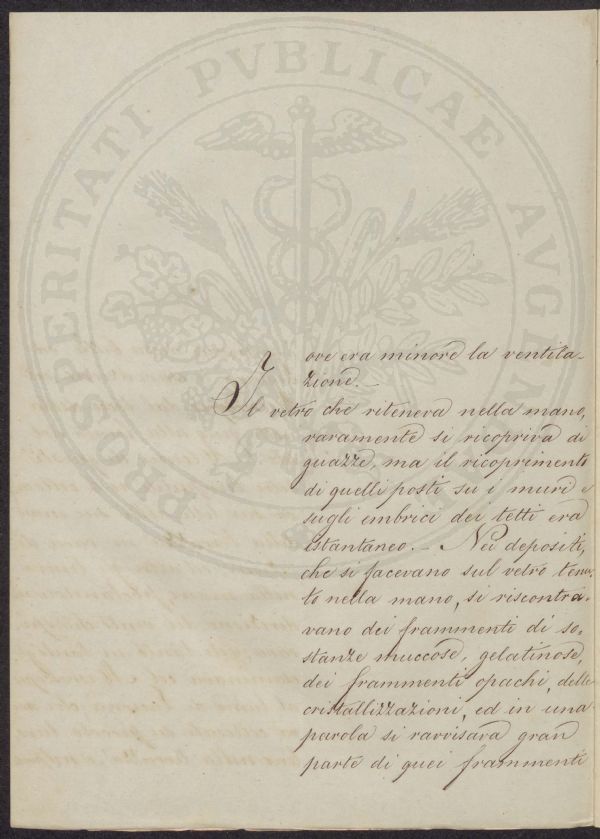 PROSPERITATI PVBLICAE AVGENDAE
ove era minore la ventila-
zione.-
Il vetro che riteneva nella mano,
raramente si ricopriva di
guazze, ma il ricoprimento
di quelli posti su i muri e
sugli embrici dei tetti era
istantaneo.- Nei depositi,
che si facevano sul vetro tenu-
to nella mano, si riscontra-
vano dei frammenti di so-
stanze muccose, gelatinose,
dei frammenti opachi, delle
cristallizzazioni, ed in una
parola si ravvisava gran
parte di quei frammenti